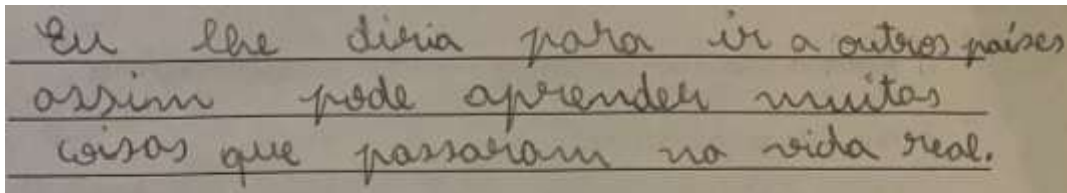 Eu lhe diria para ir a outros países
assim pode aprender muitas
coisas que passaram na vida real.